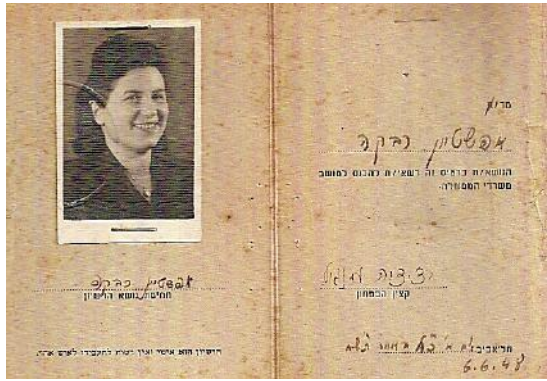 אפשטיין רבקה
הנושא/ת כרטיס זה רשאי/ת להכנס למושב
משרדי הממשלה
קצין הבטחון
תל־אביב
6.6.48
אפשטיין רבקה
חתימת נושא הרשיון
הרשיון הוא אישי ואין רשות להעבירו לאיש אחר.